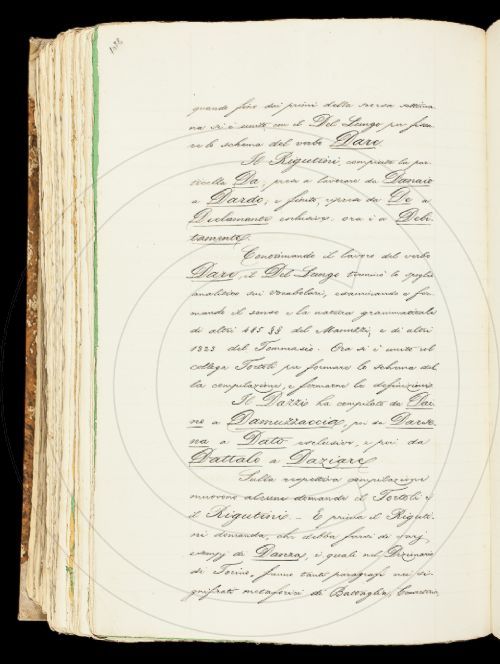 quando fino dai primi della scorsa settima
na si è unito con il Del Lungo per fissa
re lo schema del verbo Dare.
Il Rigutini, compiuta la par
ticella Da, prese a lavorare da Danaio
a Dardo, e finito, riprese da De a
Declamante esclusive. ora è a Debi
tamente.
Continuando il lavoro del verbo
Dare, il Del Lungo terminò lo spoglio
analitico sui vocabolari, esaminando e for
mando il senso e la natura grammaticale
di altri 485 §§ del Manuzzi, e di altri
1323 del Tommaseo. Ora si è unito col
collega Tortoli per formare lo schema del
la compilazione, e formarne le definizioni.
Il Dazzi ha compilato da Dai
no a Damuzzaccio, poi da Darse
na a Dato esclusive, e poi da
Dattalo a Daziare.
Sulla respettiva compilazione
muovono alcune domande il Tortoli e
il Rigutini. – E prima il Riguti
ni domanda, che debba farsi di
esempj di Danza, i quali nel Dizionario
di Torino, fanno tanti paragrafi nei si
gnificati metaforici di Battaglia,